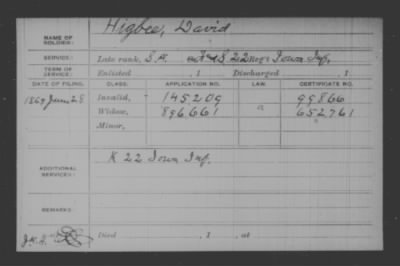 NAME OF SOLDIER: Higbee, David
SERVICE: Late rank, S.M. F & S 22 Reg't Iowa Inf.
TERM OF SERVICE: Enlisted , 1 Discharged , 1
DATE OF FILING. CLASS. APPLICATION NO. LAW. CERTIFICATE NO.
1869 June 28 Invalid, 145209 99866
Widow, 896661 652761
Minor,
K 22 Iowa Inf.
ADDITIONAL SERVICES:
REMARKS:
Died , 1 , at